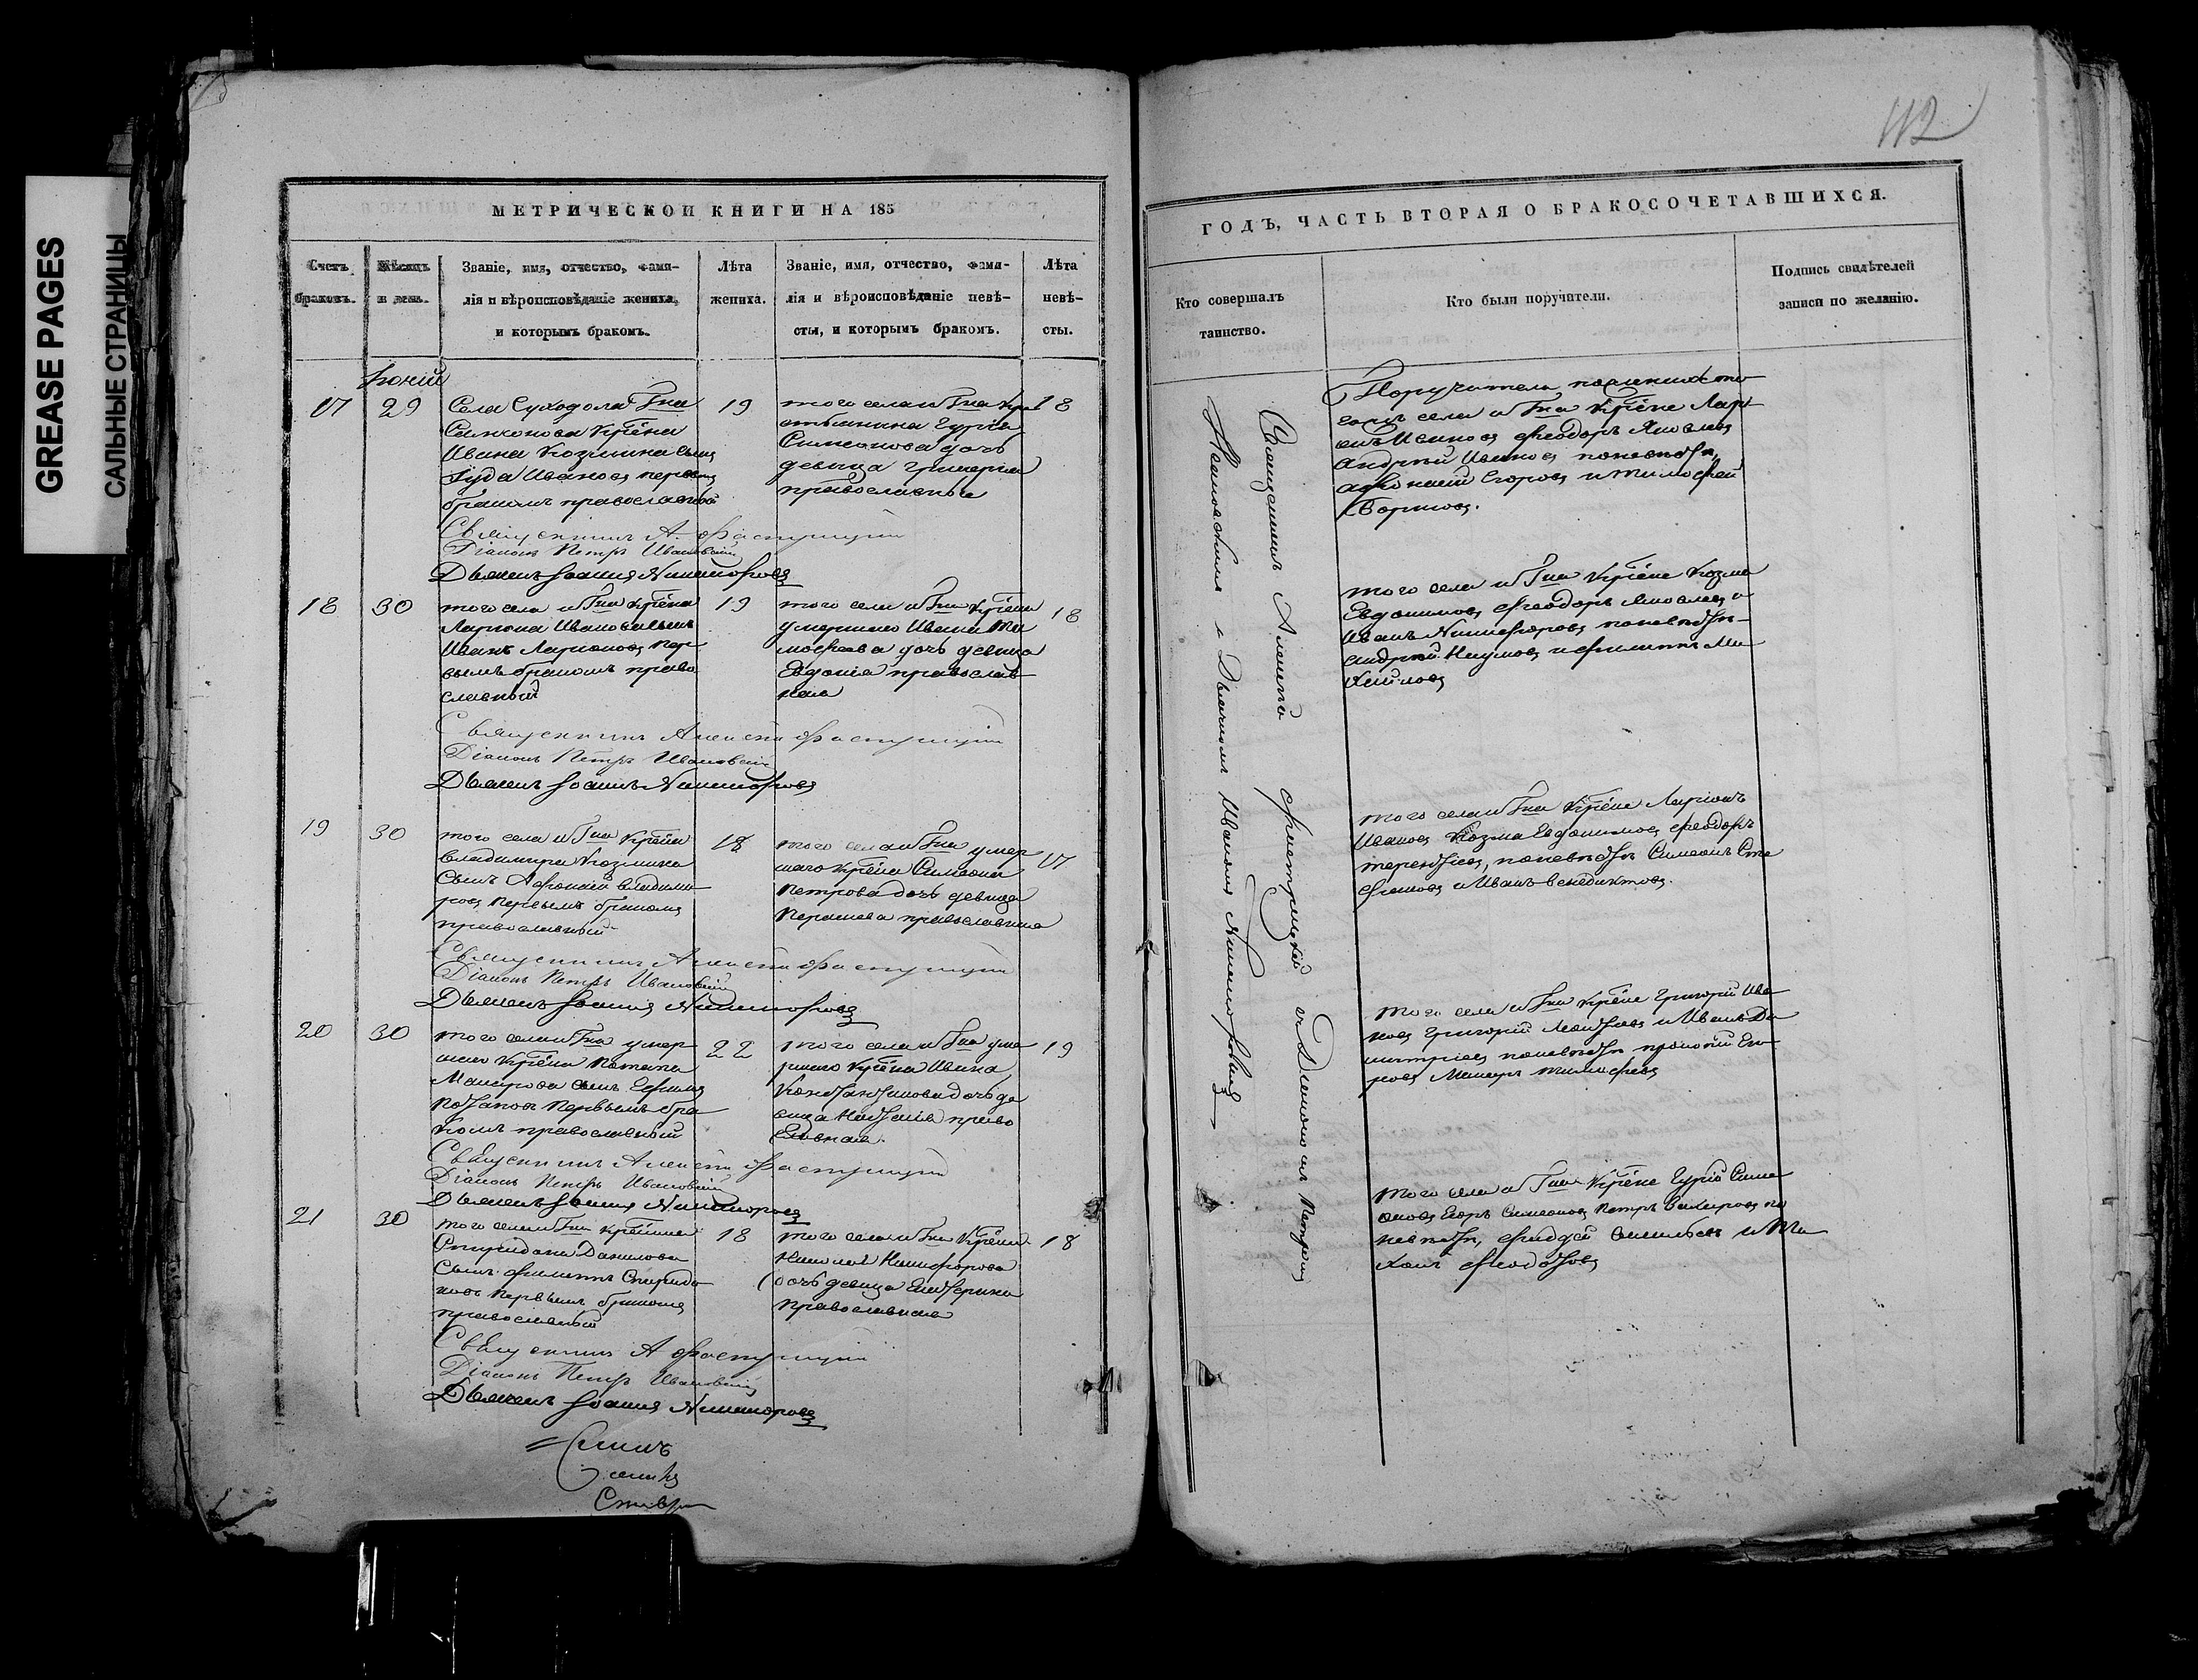 GREASE PAGES
САЛЬНЫЕ СТРАНИЦЫ
МЕТРИЧЕСКОЙ КНИГИ НА 185
Счетъ браковъ.
Мѣсяцъ и день.
Званіе, имя, отчество, фами-
лія и вѣроисповѣданіе жениха,
и которымъ бракомъ.
Лѣта
жениха.
Званіе, имя, отчество, фами-
лія и вѣроисповѣданіе невѣ-
сты, и которымъ бракомъ.
Лѣта
невѣ-
сты.
17
29
Села Суходола Гна
Крѣна
Ивана Козмина сынъ
Іуда Ивановъ первымъ
бракомъ православной
19
того села и Гна
Гурія
Симеонова дочь
девица
православная
18
Священникъ А.
Діаконъ Петръ Ивановскій
Дьячекъ Іоаннъ Никифоровъ
18
30
того села и Гна Крѣна
Лариона Иванова сынъ
Иванъ Ларионовъ пер-
вымъ бракомъ право
славный
19
того села и Гна Крѣна
умершаго Ивана Ти
мофеева дочь девица
Евдокія православ
ная
18
Священникъ Алексей
Діаконъ Петръ Ивановскій
Дьячекъ Іоаннъ Никифоровъ
19
30
того села и Гна Крѣна
Владимира Козмина
сынъ Афонасій Владими
ровъ первымъ бракомъ
православный
18
того села и Гна умер
шаго Крѣна Симеона
Петрова дочь девица
православная
17
Священникъ Алексей
Діаконъ Петръ Ивановскій
Дьячекъ Іоаннъ Никифоровъ
20
30
того села и Гна умер
шаго Крѣна Потапа
сынъ Ефимъ
Потаповъ первымъ бра
комъ православный
22
того села и Гна уме
ршаго Крѣна Ивана
Константинова дочь де
вица Наталія право
славная.
19
Священникъ Алексей
Діаконъ Петръ Ивановскій
Дьячекъ Іоаннъ Никифоровъ
21
30
того села и Гна Крѣнина
Спиридона Данилова
сынъ Филиппъ Спиридо
новъ первымъ бракомъ
православный
18
того села и Гна Крѣна
Николая Никифорова
дочь девица Екатерина
православная
18
Священникъ А
Діаконъ Петръ Ивановскій
Дьячекъ Іоаннъ Никифоровъ
112
ГОДЪ, ЧАСТЬ ВТОРАЯ О БРАКОСОЧЕТАВШИХСЯ.
Кто совершалъ
таинство.
Кто были поручители.
Подпись свидѣтелей
записи по желанію.
Священникъ Алексей съ Діакономъ Петромъ
Ивановскимъ и Дьячкомъ Иваномъ Никифоровымъ
Поручители по женихе то
гожъ села и Гна Крѣне Лари
онъ Ивановъ Феодоръ Яковлевъ
Андрей Ивановъ по невѣсте
Афонасій Егоровъ и Тимофей
Борисовъ.
того села и Гна Крѣне Козма
Евдокимовъ Феодоръ Яковлевъ и
Иванъ Никифоровъ по невѣсте
Андрей Наумовъ и Филиппъ Ми
хайловъ
того села и Гна Крѣне Ларіонъ
Ивановъ Козма Евдокимовъ Феодоръ
Терентіевъ, по невѣсте Симеонъ Сте
фановъ и Иванъ Венедиктовъ.
того села и Гна Крѣне Григорій Ива
новъ Григорій и Иванъ Ди
митріевъ по невѣсте Прокофій Его
ровъ Тимофеевъ
того села и Гна Крѣне Гурій Симе
оновъ Егоръ Симеоновъ Петръ по
невѣсте, Фадей Васильевъ и Ти
хонъ Феодотовъ